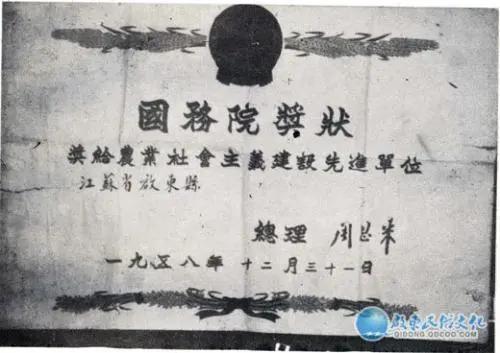 國務院獎狀
獎給農業社會主義建設先進單位
江蘇省啟東縣
總理 周恩來
一九五八年十二月三十一日
启东民俗文化
QIDONG.QDCOO.COM